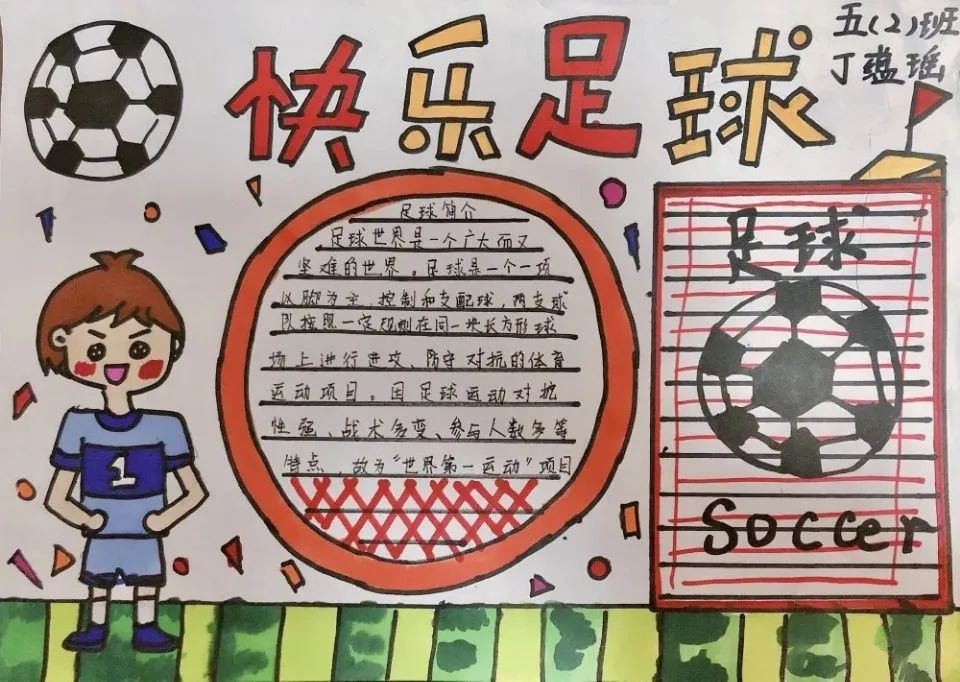 快乐足球
五(2)班
丁蕴瑶
足球简介
足球世界是一个广大而又
坚难的世界。足球是一个一项
以脚为主,控制和支配球,两支球
队按照一定规则在同一块长方形球
场上进行进攻、防守对抗的体育
运动项目。因足球运动对抗
性强、战术多变、参与人数多等
特点,故为“世界第一运动”项目
足球
Soccer
1